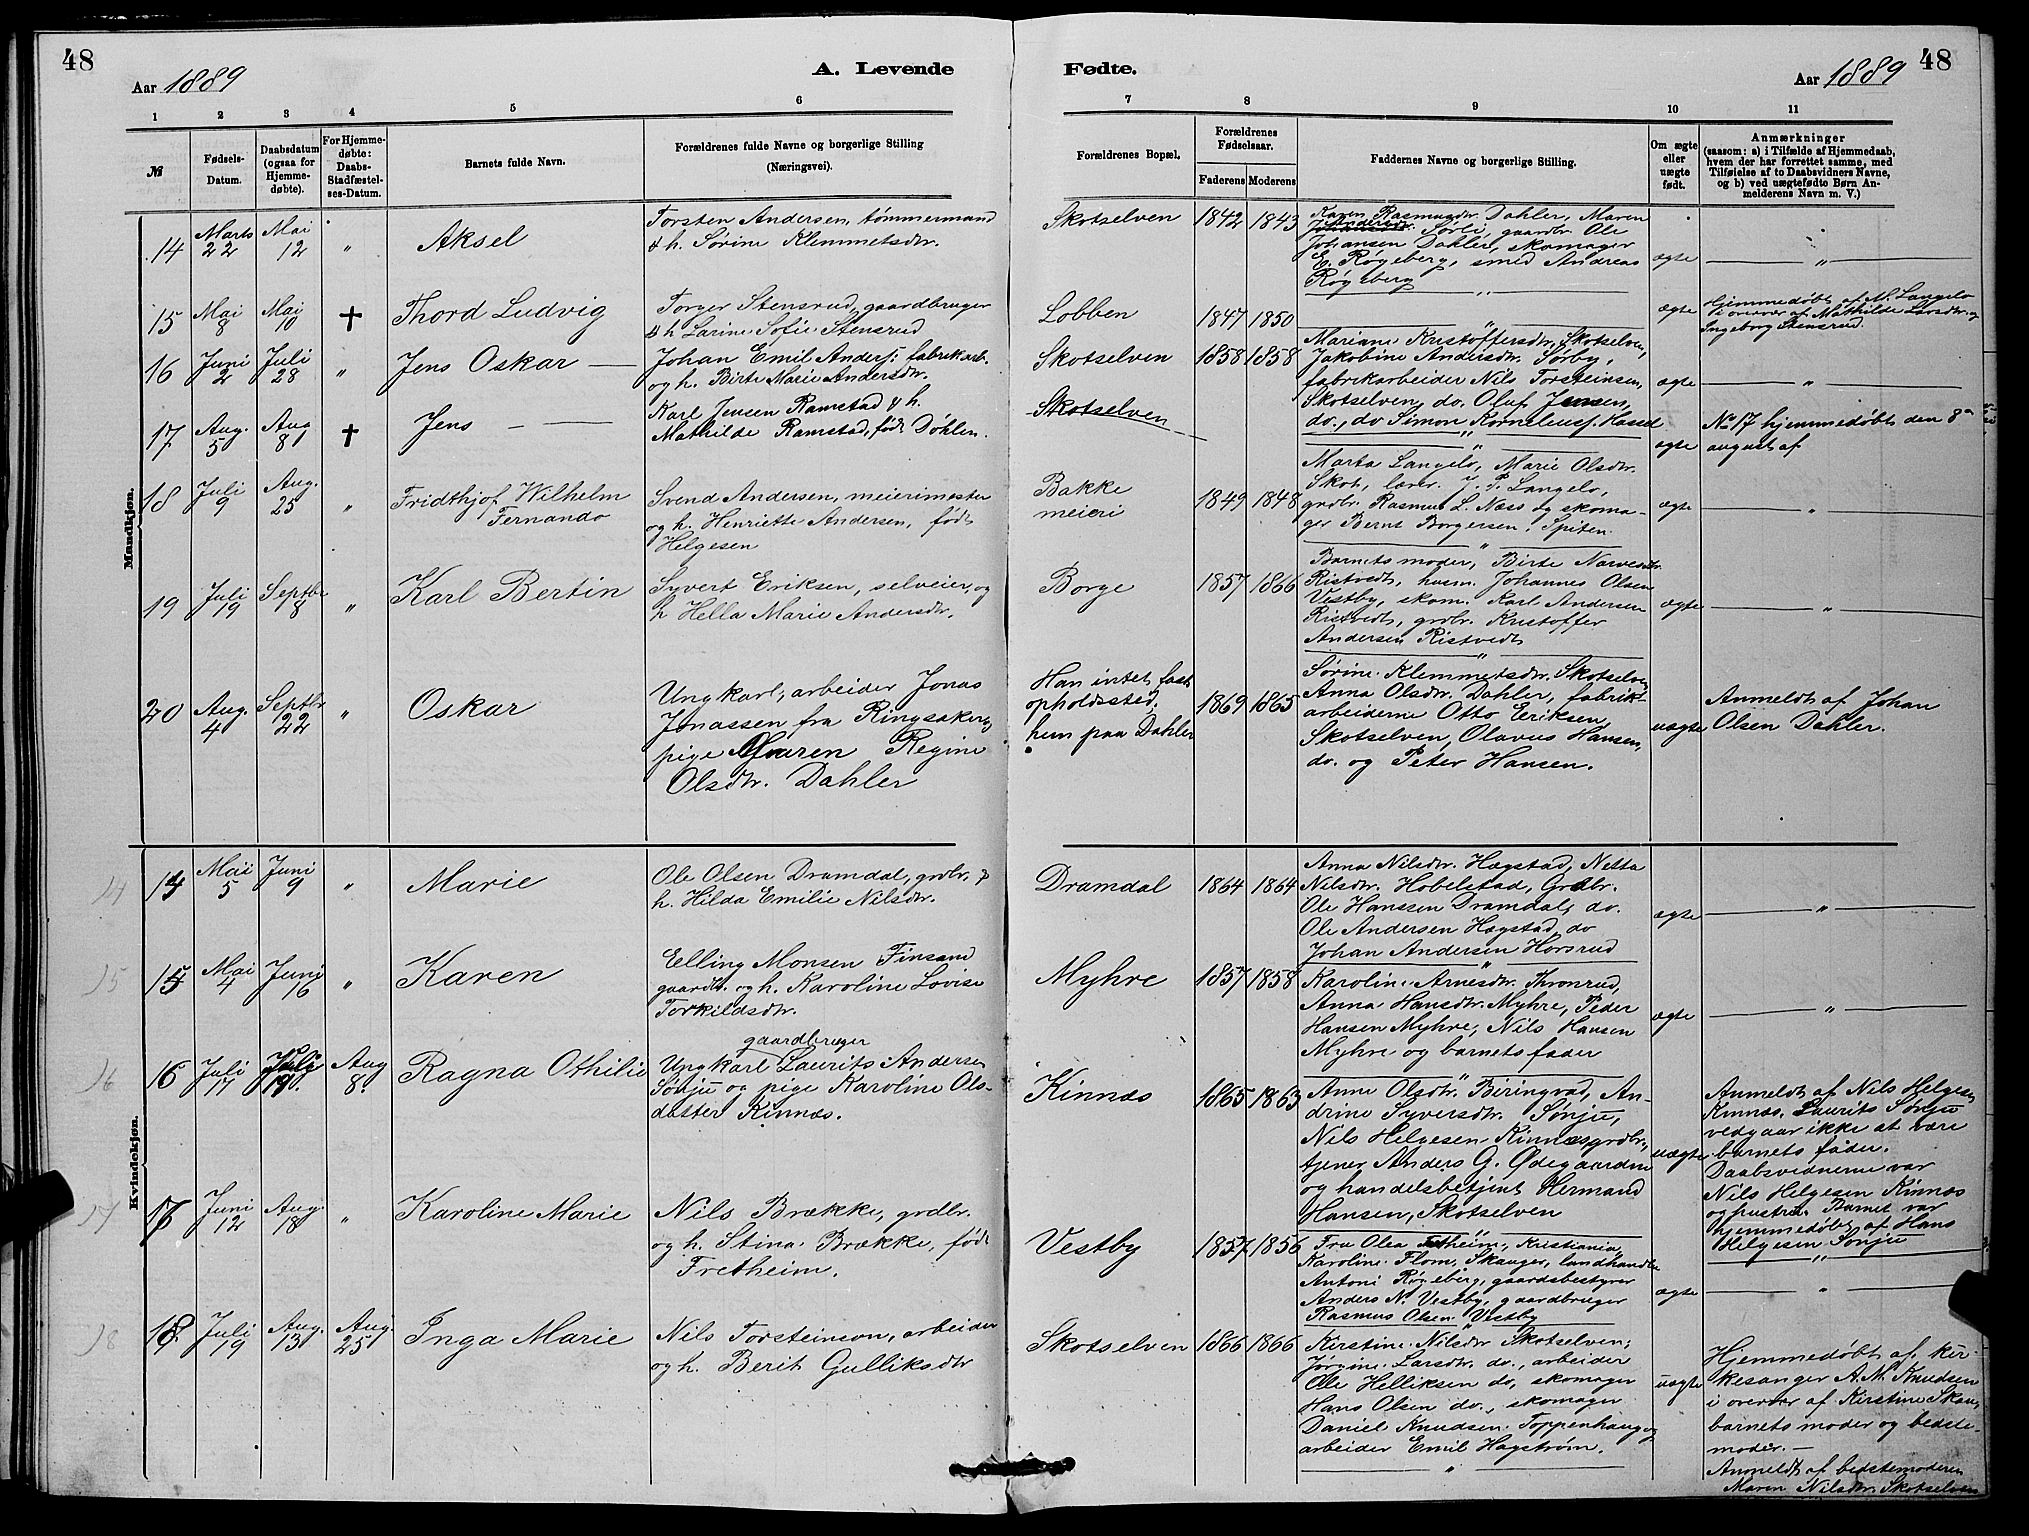 48
Aar 1889
A. Levende
Fødte.
Aar 1889
48
1 2 3 4 5 6 7 8 9 10 11
№
Fødsels-Datum.
Daabsdatum (ogsaa for Hjemme-døbte).
For Hjemme-døbte: Daabs-Stadfæstel-ses-Datum.
Barnets fulde Navn.
Forældrenes fulde Navne og borgerlige Stilling
(Næringsvei).
Forældrenes Bopæl.
Forældrenes Fødselsaar.
Faderens Moderens
Faddernes Navne og borgerlige Stilling.
Om ægte eller uægte født.
Anmærkninger
(saasom: a) i Tilfælde af Hjemmedaab,
hvem der har forrettet samme, med
Tilføielse af to Daabsvidners Navne,
og b) ved uægtefødte Børn An-
melderens Navn m. V.)
Mandkjøn.
14 Marts 22 Mai 12 " Aksel
Torsten Andersen, tømmermand
& h. Sørine Klemmetsdtr.
Skotselven 1842 1843
Karen Rasmusdtr. Dahler, Maren
Sørli, gaardbr. Ole
Johansen Dahler, skomager
E. Røgeberg, smed Andreas
Røgeberg
ægte "
15 Mai 8 Mai 10 ✝ Thord Ludvig
Torger Stensrud, gaardbruger
& h Larine Sofie Stensrud
Lobben 1847 1850 "
ægte
Hjemmedøbt af M. Langelo
i overvær af Mathilde Larsdtr. og
Ingeborg Stensrud.
16 Juni 2 Juli 28 " Jens Oskar
Johan Emil Anders: fabrikarb.
og h. Birte Marie Andersdtr.
Skotselven 1858 1858
Mariane Kristoffersdtr. Skotselven,
Jakobine Andersdtr. Sørby,
fabrikarbeider Nils Torsteinsen,
Skotselven, do. Oluf Jensen,
do., do Simon Korneliuss. Hassel
ægte "
17 Aug. 5 Aug 8 ✝ Jens
Karl Jensen Ramstad & h.
Mathilde Ramstad, født Døhlen.
Skotselven "
ægte
No 17 hjemmedøbt den 8de
august af
18 Juli 9 Aug. 25 " Fridthjof Wilhelm
Fernando
Svend Andersen, meierimester
og h. Henriette Andersen, født
Helgesen
Bakke
meieri
1849 1848
Marta Langelo, Marie Olsdtr.
Skot, lærer J. P. Langelo,
grdbr. Rasmus L. Næss og skoma-
ger Bernt Borgersen, Spiten.
ægte "
19 Juli 19 Septbr 8 " Karl Bertin
Syvert Eriksen, selveier, og
h Hella Marie Andersdtr.
Borge 1857 1866
Barnets moder, Birte Narvesdtr.
Ristvedt, husm. Johannes Olsen
Vestby, skom. Karl Andersen
Ristvedt, grdbr. Kristoffer
Andersen Ristvedt
ægte "
20 Aug. 4 Septbr 22 " Oskar
Ungkarl, arbeider Jonas
Jonassen fra Ringsaker og
pige Maren Regine
Olsdtr. Dahler
Han intet fast
opholdssted,
hun paa Dahler
1869 1865
Sørine Klemmetsdtr. Skotselven,
Anna Olsdtr. Dahler, fabrik-
arbeiderne Otto Eriksen,
Skotselven, Olavus Hansen,
do. og Peter Hansen.
uægte
Anmeldt af Johan
Olsen Dahler.
Kvindekjøn.
14 Mai 5 Juni 9 " Marie
Ole Olsen Dramdal, grdbr. &
h. Hilda Emilie Nilsdtr.
Dramdal 1864 1864
Anna Nilsdtr. Hægstad, Netta
Nilsdtr. Hobelstad, Grdbr.
Ole Hanssen Dramdal, do.
Ole Andersen Hægstad, do
Johan Andersen Horsrud
ægte "
15 Mai 4 Juni 16 " Karen
Elling Monsen Finsand
gaardb. og h. Karoline Lovise
Torkildsdtr.
Myhre 1857 1858
Karoline Arnesdtr. Thronrud,
Anna Hansdtr. Myhre, Peder
Hansen Myhre, Nils Hansen
Myhre og barnets fader
ægte "
16 Juli 17 Juli 19. Aug 8. Ragna Othilie
gaardbruger
Ungkarl Laurits Andersen
Sønju og pige Karoline Ols-
datter Kinnæs.
Kinnæs 1865 1863
Anne Olsdtr. Biringvad, An-
drine Syversdtr. Sønju,
Nils Helgesen Kinnæs grdbr.,
tjener Anders G. Ødegaarden
og handelsbetjent Hermand
Hansen, Skotselven
uægte
Anmeldt af Nils Helgesen
Kinnæs. Laurits Sønju
vedgaar ikke at være
barnets fader.
Daabsvidnerne var
Nils Helgesen Kinnæs
og hustru. Barnet var
hjemmedøbt af Hans
Helgesen Sønju
17 Juni 12 Aug. 18 " Karoline Marie
Nils Brække, grdbr.
og h. Stina Brække, født
Fretheim.
Vestby 1857 1856
Fru Olea Fretheim, Kristiania,
Karoline Flom, Skauger, landhandler
Antoni Røgeberg, gaardsbestyrer
Anders N. Vestby, gaardbruger
Rasmus Olsen Vestby
ægte "
18 Juli 19 Aug. 13 Aug. 25 Inga Marie
Nils Torsteinson, arbeider
og h. Berit Gulliksdtr
Skotselven 1866 1866
Kirstine Nilsdtr Skotselven,
Jørgine Larsdtr. do., arbeider
Ole Helliksen do, skomager
Hans Olsen do., skomager
Daniel Knudsen Toppenhaug og
arbeider Emil Hagstrøm.
uægte
Hjemmedøbt af kir-
kesanger A. M. Knudsen
i overvær af Kirstine Skau,
barnets moder og bedste-
moder. —
Anmeldt af bedstemoderen
Maren Nilsdtr. Skotselven
14
15
16
17
18